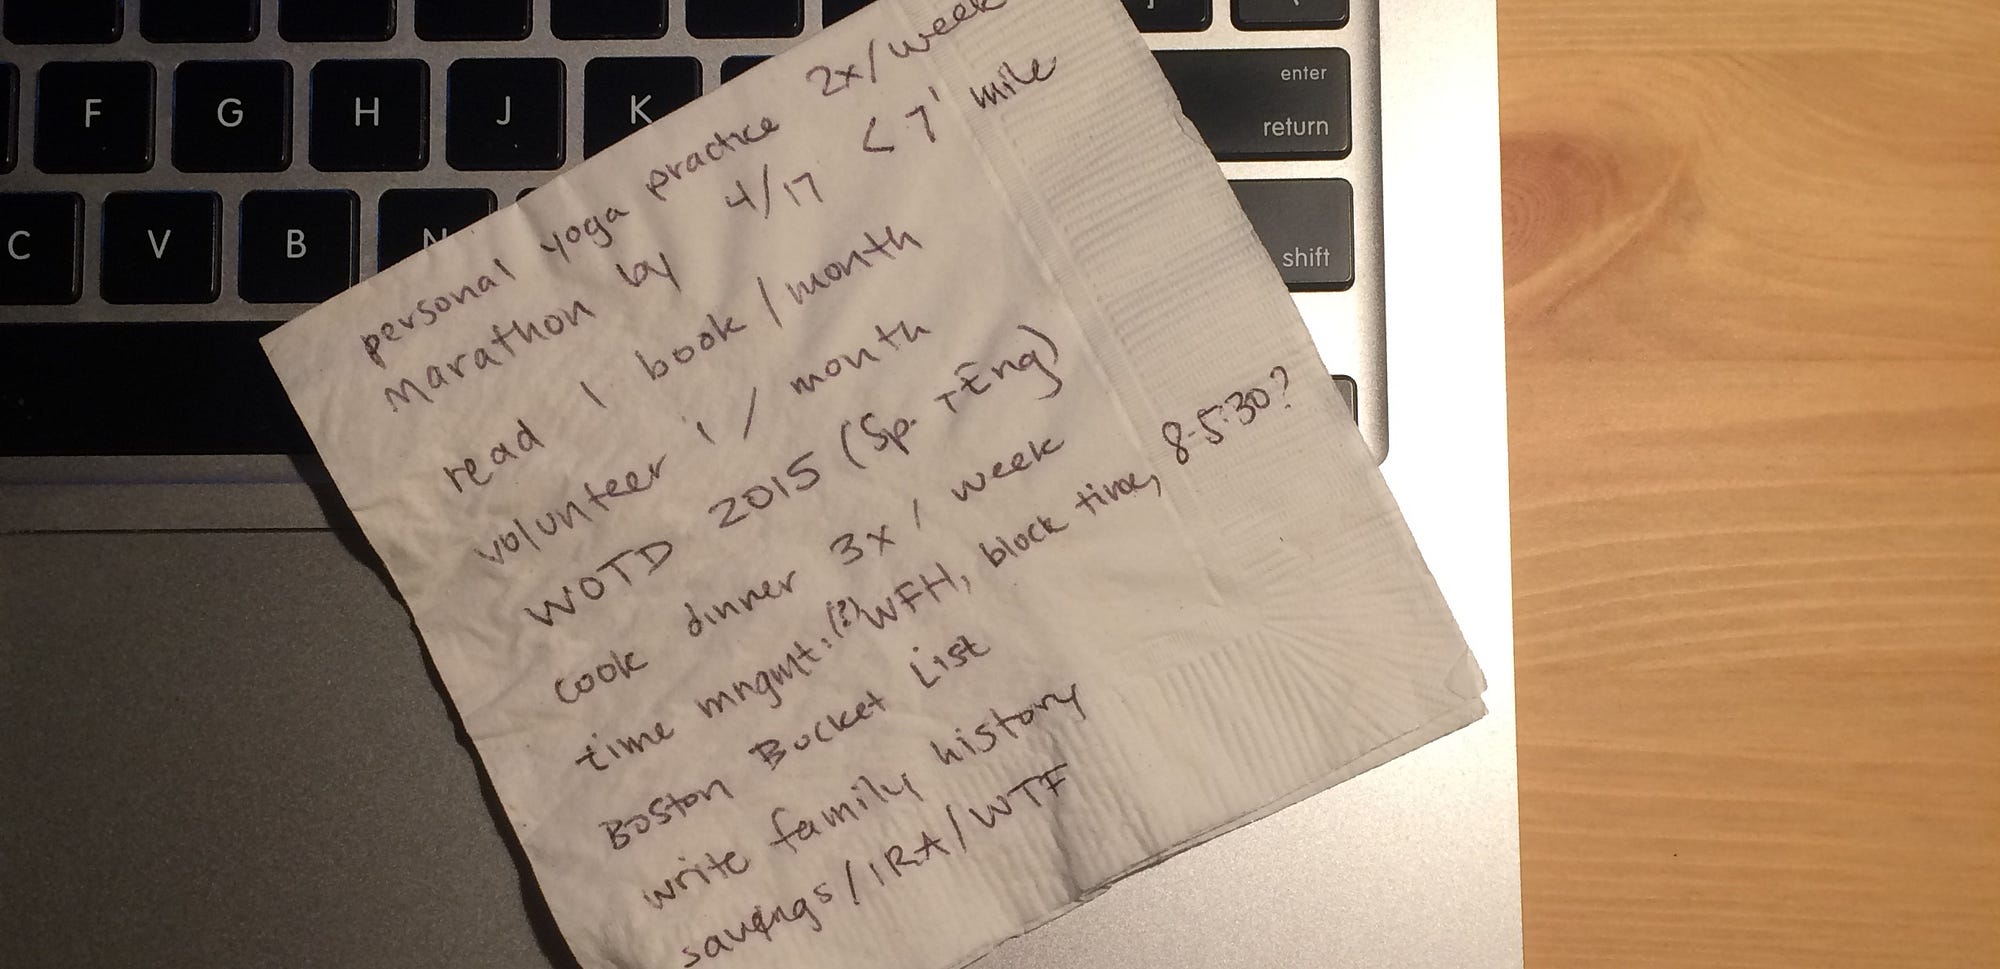 enter
F G H J K return
C V B N shift
personal yoga practice 2x/week
Marathon by 4/17 < 7' mile
read 1 book / month
volunteer 1 / month
WOTD 2015 (Sp. + Eng)
cook dinner 3x / week
time mngmt: (?) WFH, block time, 8-5:30?
Boston Bucket List
write family history
savings / IRA / WTF